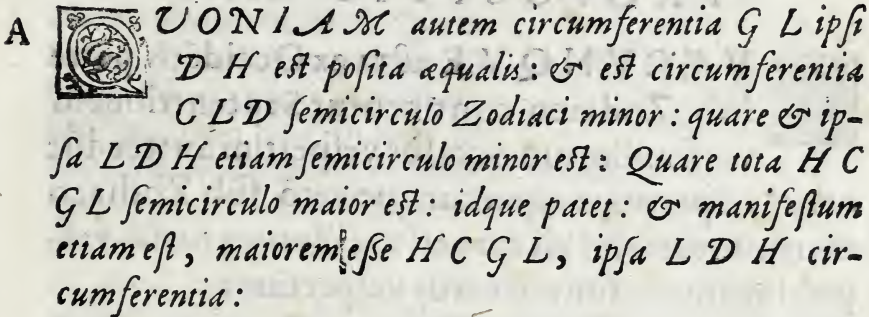 A QUONIAM autem circumferentia G L ipſi
D H eſt poſita æqualis: & eſt circumferentia
C L D ſemicirculo Zodiaci minor: quare & ip-
ſa L D H etiam ſemicirculo minor eſt: Quare tota H C
G L ſemicirculo maior eſt: idque patet: & manifeſtum
etiam eſt, maiorem eſſe H C G L, ipſa L D H cir-
cumferentia: